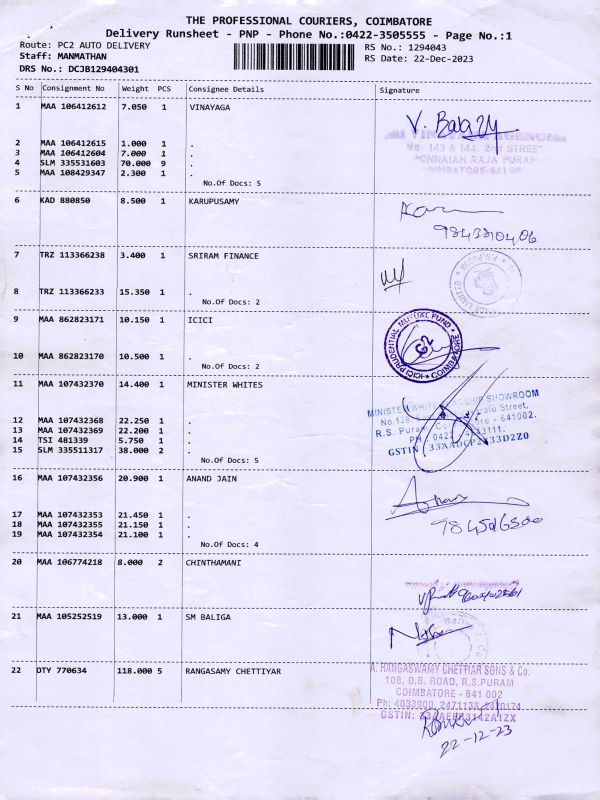 THE PROFESSIONAL COURIERS, COIMBATORE
Delivery Runsheet - PNP - Phone No.:0422-3505555 - Page No.:1
Route: PC2 AUTO DELIVERY
RS No.: 1294043
Staff: MANMATHAN
RS Date: 22-Dec-2023
DRS No.: DCJB129404301
S No Consignment No Weight PCS Consignee Details Signature
1 MAA 106412612 7.050 1 VINAYAGA
V. Balaji
No. 143 & 144, 2nd STREET
PONNAIAH RAJA PURAM
COIMBATORE-641
2 MAA 106412615 1.000 1 .
3 MAA 106412604 7.000 1 .
4 SLM 335531603 70.000 9 .
5 MAA 108429347 2.300 1 .
No.Of Docs: 5
6 KAD 880850 8.500 1 KARUPUSAMY
7 TRZ 113366238 3.400 1 SRIRAM FINANCE
8 TRZ 113366233 15.350 1 .
No.Of Docs: 2
9 MAA 862823171 10.150 1 ICICI
ICICI PRUDENTIAL MUTUAL FUND
COIMBATORE
10 MAA 862823170 10.500 1 .
No.Of Docs: 2
11 MAA 107432370 14.400 1 MINISTER WHITES
MINISTER WHITE SHOWROOM
Street,
R.S. Puram, 641002.
GSTIN
12 MAA 107432368 22.250 1 .
13 MAA 107432369 22.200 1 .
14 TSI 481339 5.750 1 .
15 SLM 335511317 38.000 2 .
No.Of Docs: 5
16 MAA 107432356 20.900 1 ANAND JAIN
17 MAA 107432353 21.450 1 .
18 MAA 107432355 21.150 1 .
19 MAA 107432354 21.100 1 .
No.Of Docs: 4
20 MAA 106774218 8.000 2 CHINTHAMANI
21 MAA 105252519 13.000 1 SM BALIGA
22 OTY 770634 118.000 5 RANGASAMY CHETTIYAR
A. RANGASWAMY CHETTIAR SONS & Co.
108, D.B. ROAD, R.S.PURAM
COIMBATORE - 641 002
Ph: 4033900, 2471138,
GSTIN:
22-12-23